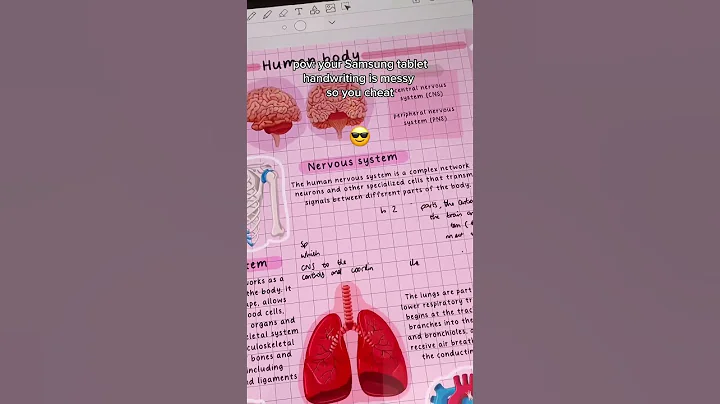 Human body
pov: your Samsung tablet
handwriting is messy
so you cheat
central nervous
system (CNS)
peripheral nervous
system (PNS)
Nervous system
The human nervous system is a complex network
neurons and other specialized cells that transm
signals between different parts of the body.
in 2 parts, the
the brain an
Sp
which
CNS to the the
controls and coordin
tem
works as a
the body. it
pe, allows
ood cells,
organs and
eletal system
culoskeletal
bones and
including
nd ligaments
The lungs are part
lower respiratory tr
begins at the trac
branches into the
and bronchioles, a
receive air breath
the conductin